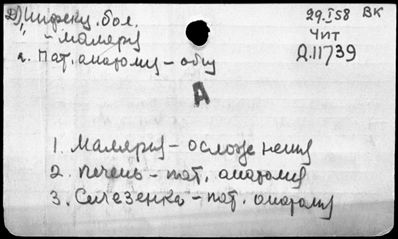 29.I 58 ВК
Д) Инфекц. бол.
Чит
" - малярия
Д.11739
а. Пат. анатомия - общ
А
1. Малярия - осложнения
2. Печень - пат. анатомия
3. Селезенка - пат. анатомия